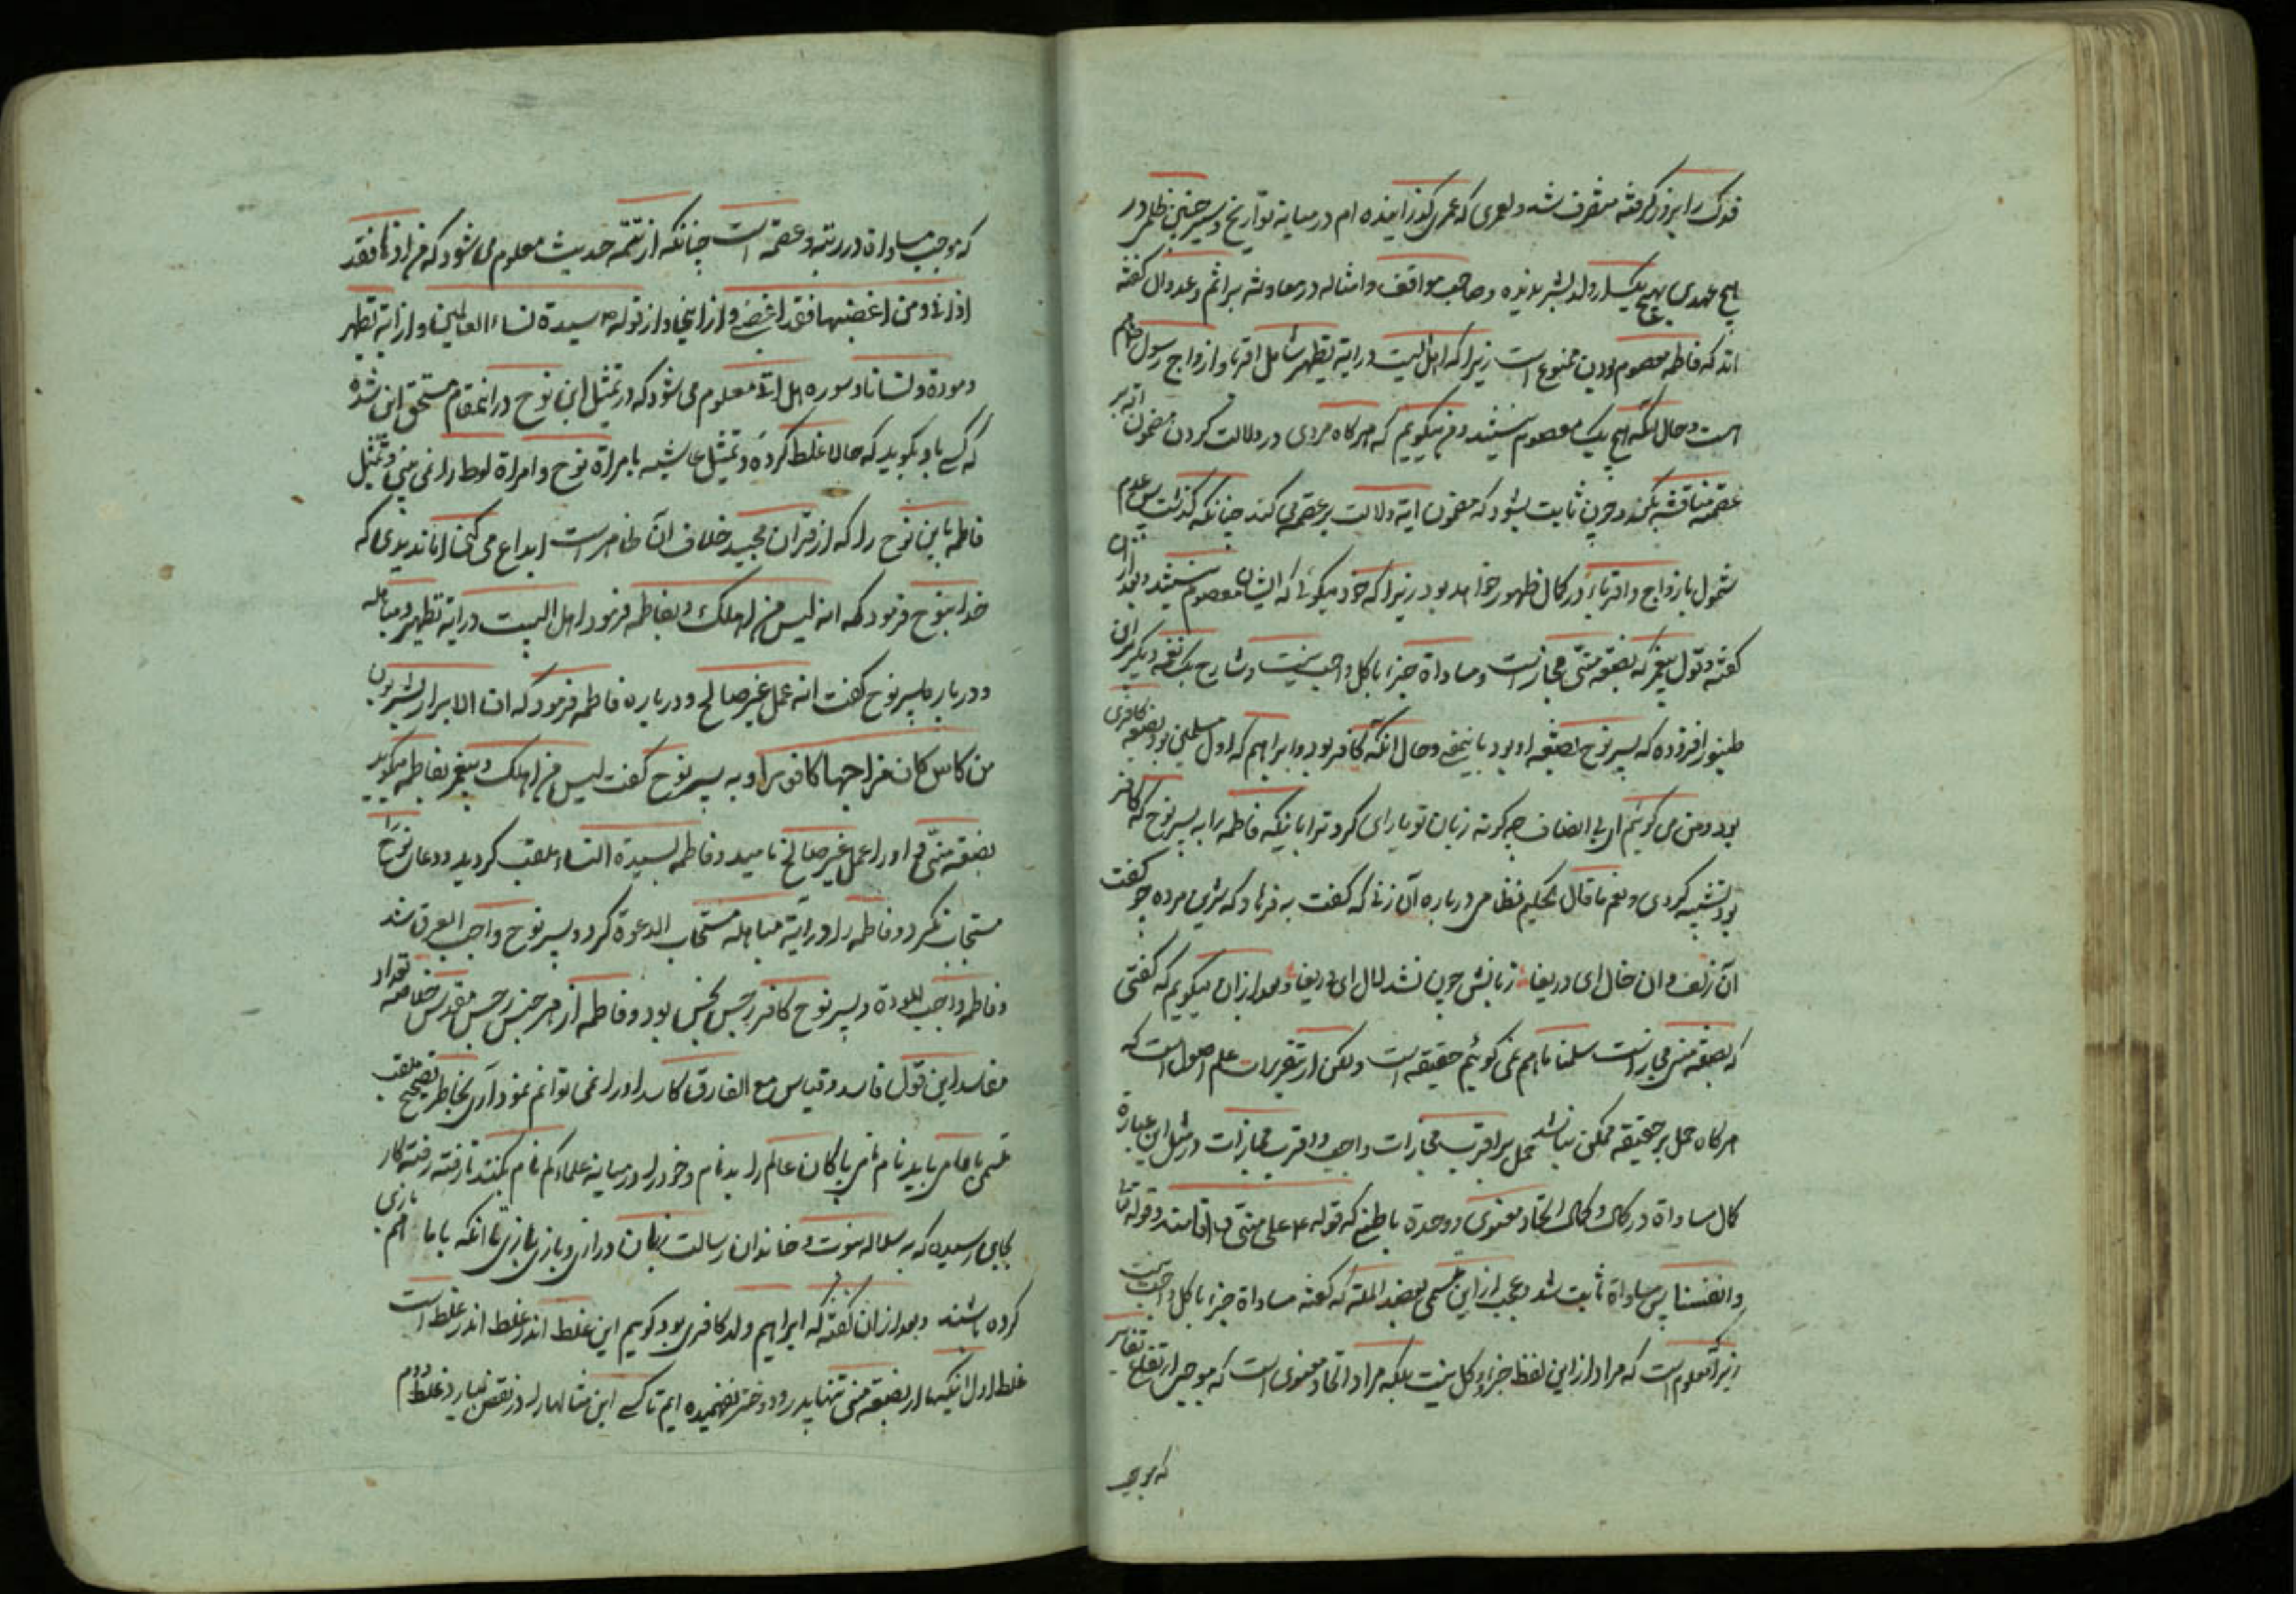 فدک را بزور گرفته متصرف شد ولعمری که عمری گذرانیده ام در میانه تواریخ وسیر چنین ظلمی در
هیچ عهدی بهیچ یک از ولد بشر ندیده وصاحب مواقف وامثاله در معاونت بر اثم وعدوان گفته
اند که فاطمه معصوم بودن ممنوع است زیرا که اهل البیت در ایة تطهیر شامل اقربا وازواج رسول
است وحال انکه هیچ یک معصوم نیستند ومن میگویم که هرگاه مردی در دلالت کردن مضمون ایه بر
عصمة مناقشه بکند وچون ثابت بشود که مضمون ایه دلالت بر عصمة می کند چنانکه گذشت پس عدم
شمول بازواج واقرباء در کمال ظهور خواهد بود زیرا که خود میگوئی که ایشان معصوم نیستند وبعد ازان
گفته وقول پیغمبر که بضعة منّی مجاز است ومساواة جزء با کل واجب نیست وشارح یک نغمه دیگر بر این
طنبور افزوده که پسر نوح بضعه او بود باینمعنی وحال انکه کافر بود وابراهیم که اول مسلمین بود بضعه کافری
بود ومن می گویم ای بی انصاف چه گونه زبان تو یارای کرد ترا باینکه فاطمه را به پسر نوح که کافر
بود تشبیه کردی ونعم ما قال الحکیم نظامی درباره آن زنی که گفت به فرهاد که شیرین مرده چو گفت
آن زلف وان خال ای دریغا زبانش چون نشد لال ای دریغا وبعد ازان میگویم که گفتی
که بضعة منی مجاز است سلمنا ما هم نمی گوئیم حقیقه است ولکن از تقریرات علم اصول است که
هرگاه حمل بر حقیقه ممکن نباشد حمل بر اقرب مجازات واجب واقرب مجازات در مثل این عبارة
کمال مساواة در کمال وکمال اتحاد معنوی ووحدة باطنی که قوله ع علی منّی وقوله تعا
وانفسنا پس مساواة ثابت شد وعجب از این مسمی بعضد المله که گفته مساواة جزء با کل واجب نیست
زیرا معلوم است که مراد از این لفظ جزء وکل نیست بلکه مراد اتحاد معنوی است که موجب
که موجب
که موجب مساواة در رتبه وعصمة است چنانکه از تتمّه حدیث معلوم می شود که من اذاها فقد
اذانی ومن اغضبها فقد اغضبنی واز اینجا واز قوله ص سیدة نساء العالمین واز ایة تطهیر
ومودة ونسائنا وسوره هل اتی معلوم می شود که در تمثیل ابن نوح در اینمقام مستحق این شده
که کسی باو بگوید که حالا غلط کرده وتمثیل عایشه بامراة نوح وامراة لوط را نمی بینی وتمثیل
فاطمه بابن نوح را که از قران مجید خلاف آن ظاهر است ابداع می کنی ایا ندیدی که
خدا بنوح فرمود که انه لیس من اهلک وبفاطمه فرمود اهل البیت در ایة تطهیر ومباهله
ودرباره پسر نوح گفت انه عمل غیر صالح ودرباره فاطمه فرمود که ان الابرار یشربون
من کاس کان مزاجها کافورا وبه پسر نوح گفت لیس من اهلک وپیغمبر بفاطمه میگوید
بضعة منّی واو را عمل غیر صالح نامید وفاطمه بسیدة النساء ملقب گردید ودعای نوح را
مستجاب نکرد وفاطمه را در آیة مباهله مستجاب الدعوة کرد وپسر نوح واجب الغرق شد
وفاطمه واجب المودة وپسر نوح کافر رجس نجس بود وفاطمه از هر جنس رجس مقدس خلاصه تعداد
مفاسد این قول فاسد وقیاس مع الفارق کاسد او را نمی توانم نمود آری بخاطر
باید نام نامی پاکان عالم را بد نام وخود را در میانه علماء کم نام بکنند تا رفته رفته کار
بجایی رسیده که به سلاله نبوت وخاندان رسالت زبان درازی وبازی بازی تا انکه با ما هم بازی
کرده باشند وبعد ازان گفته که ابراهیم ولد کافری بود گویم این غلط اندر غلط اندر غلط است
غلط اول اینکه ما از بضعة منی تنها پدر ودختر نفهمیده ایم تا کسی این مثالها را در نقض بیارد غلط دوم